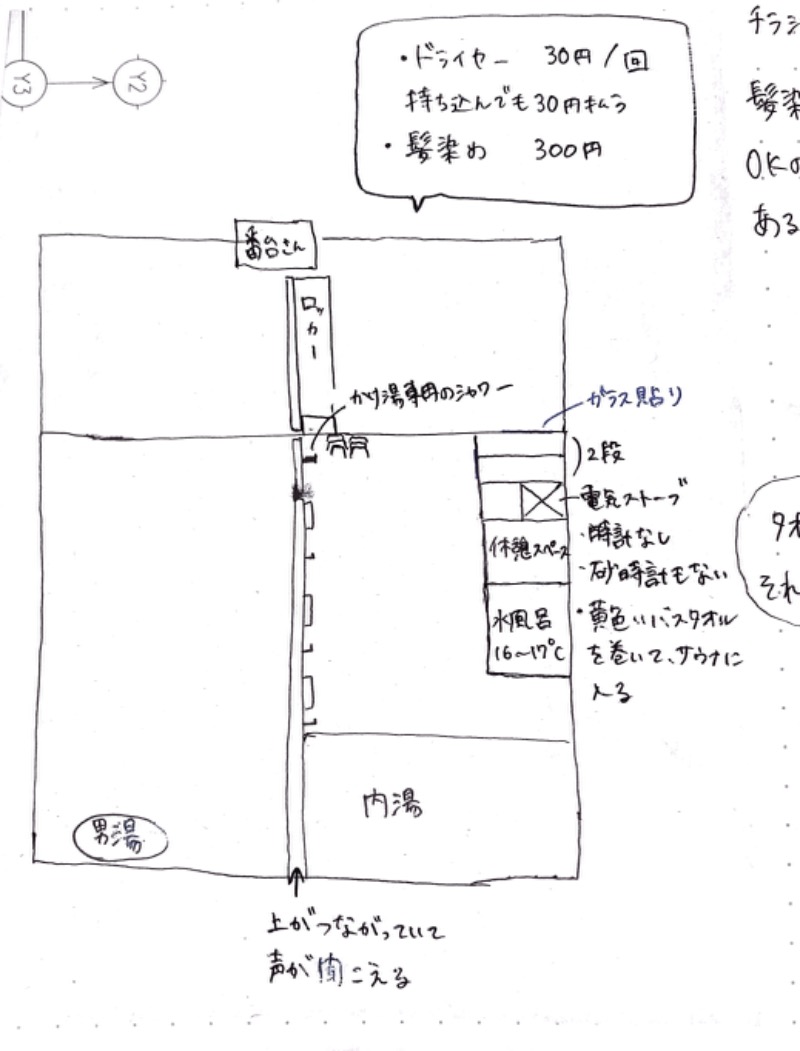 Y3
Y2
・ドライヤー 30円/回
持ち込んでも30円払う
・髪染め 300円
チラシ
髪染
OKの
ある
番台さん
ロッカー
かけ湯専用のシャワー
ガラス貼り
2段
電気ストーブ
・時計なし
・砂時計もない
・黄色いバスタオル
を巻いて、サウナに
入る
休憩スペース
水風呂
16〜17℃
タオ
それ
内湯
男湯
上がつながっていて
声が聞こえる